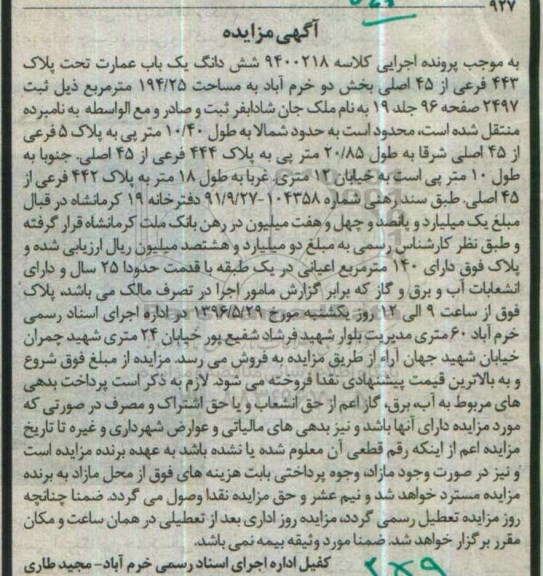 ۹۲۷
آگهی مزایده
به موجب پرونده اجرایی کلاسه ۹۴۰۰۲۱۸ شش دانگ یک باب عمارت تحت پلاک
۴۴۳ فرعی از ۴۵ اصلی بخش دو خرم آباد به مساحت ۱۹۴/۲۵ مترمربع ذیل ثبت
۲۴۹۷ صفحه ۹۶ جلد ۱۹ به نام ملک جان شادابفر ثبت و صادر و مع الواسطه به نامبرده
منتقل شده است، محدود است به حدود شمالا به طول ۱۰/۴۰ متر پی به پلاک ۵ فرعی
از ۴۵ اصلی شرقا به طول ۲۰/۸۵ متر پی به پلاک ۴۴۴ فرعی از ۴۵ اصلی. جنوبا به
طول ۱۰ متر پی است به خیابان ۱۲ متری. غربا به طول ۱۸ متر به پلاک ۴۴۲ فرعی از
۴۵ اصلی. طبق سند رهنی شماره ۱۰۴۳۵۸-۹۱/۹/۲۷ دفترخانه ۱۹ کرمانشاه در قبال
مبلغ یک میلیارد و پانصد و چهل و هفت میلیون در رهن بانک ملت کرمانشاه قرار گرفته
و طبق نظر کارشناس رسمی به مبلغ دو میلیارد و هشتصد میلیون ریال ارزیابی شده و
پلاک فوق دارای ۱۴۰ مترمربع اعیانی در یک طبقه با قدمت حدودا ۲۵ سال و دارای
انشعابات آب و برق و گاز که برابر گزارش مامور اجرا در تصرف مالک می باشد، پلاک
فوق از ساعت ۹ الی ۱۲ روز یکشنبه مورخ ۱۳۹۶/۵/۲۹ در اداره اجرای اسناد رسمی
خرم آباد ۶۰ متری مدیریت بلوار شهید فرشاد شفیع پور خیابان ۲۴ متری شهید چمران
خیابان شهید جهان آراء از طریق مزایده به فروش می رسد. مزایده از مبلغ فوق شروع
و به بالاترین قیمت پیشنهادی نقدا فروخته می شود. لازم به ذکر است پرداخت بدهی
های مربوط به آب، برق، گاز اعم از حق انشعاب و یا حق اشتراک و مصرف در صورتی که
مورد مزایده دارای آنها باشد و نیز بدهی های مالیاتی و عوارض شهرداری و غیره تا تاریخ
مزایده اعم از اینکه رقم قطعی آن معلوم شده یا نشده باشد به عهده برنده مزایده است
و نیز در صورت وجود مازاد، وجوه پرداختی بابت هزینه های فوق از محل مازاد به برنده
مزایده مسترد خواهد شد و نیم عشر و حق مزایده نقدا وصول می گردد. ضمنا چنانچه
روز مزایده تعطیل رسمی گردد، مزایده روز اداری بعد از تعطیلی در همان ساعت و مکان
مقرر برگزار خواهد شد. ضمنا مورد وثیقه بیمه نمی باشد.
کفیل اداره اجرای اسناد رسمی خرم آباد- مجید طاری